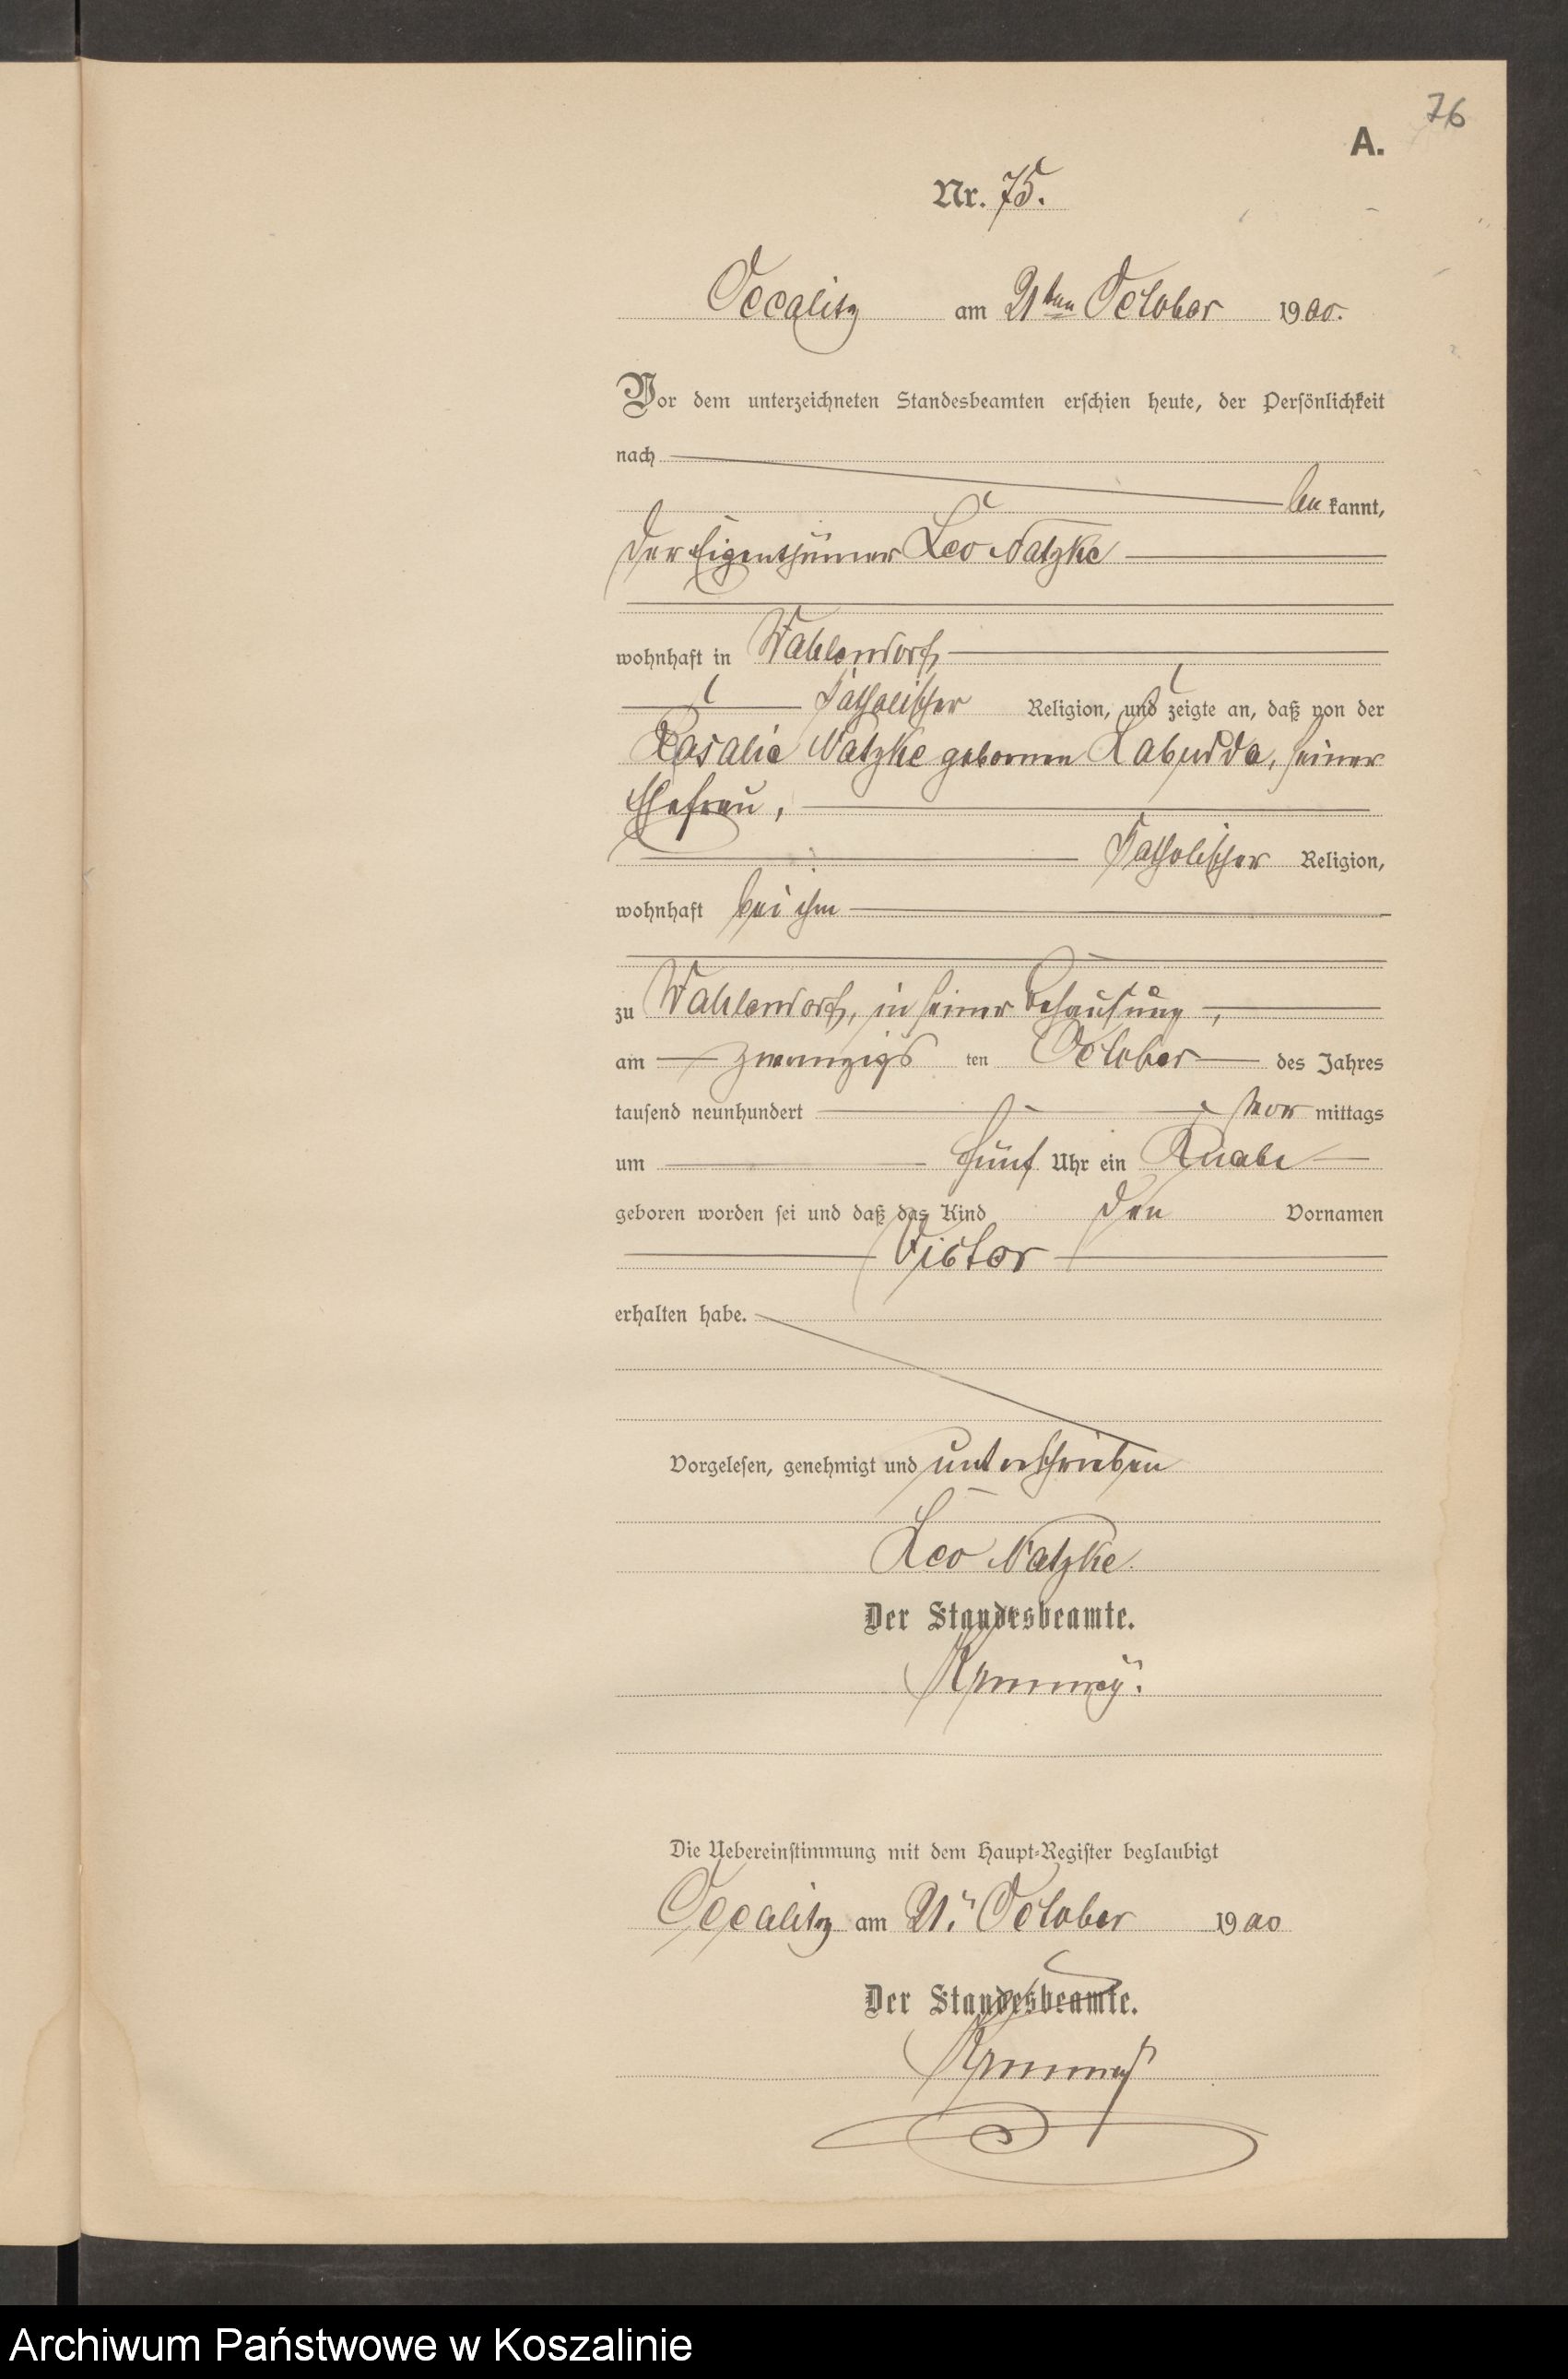 76
A.
Nr. 75.
Occalitz am 21ten October 1900.
Vor dem unterzeichneten Standesbeamten erschien heute, der Persönlichkeit
nach
be kannt,
der Eigenthümer Leo Natzke
wohnhaft in Wahlendorf,
katholischer Religion, und zeigte an, daß von der
Rosalie Natzke gebornen Labudda, seiner
Ehefrau,
katholischer Religion,
wohnhaft bei ihm
zu Wahlendorf, in seiner Behausung,
am zwanzigs ten October des Jahres
tausend neunhundert Vor mittags
um fünf Uhr ein Knabe
geboren worden sei und daß das Kind den Vornamen
Victor
erhalten habe.
Vorgelesen, genehmigt und unterschrieben
Leo Natzke.
Der Standesbeamte.
Die Uebereinstimmung mit dem Haupt-Register beglaubigt
Occalitz am 21. October 1900
Der Standesbeamte.
Archiwum Państwowe w Koszalinie